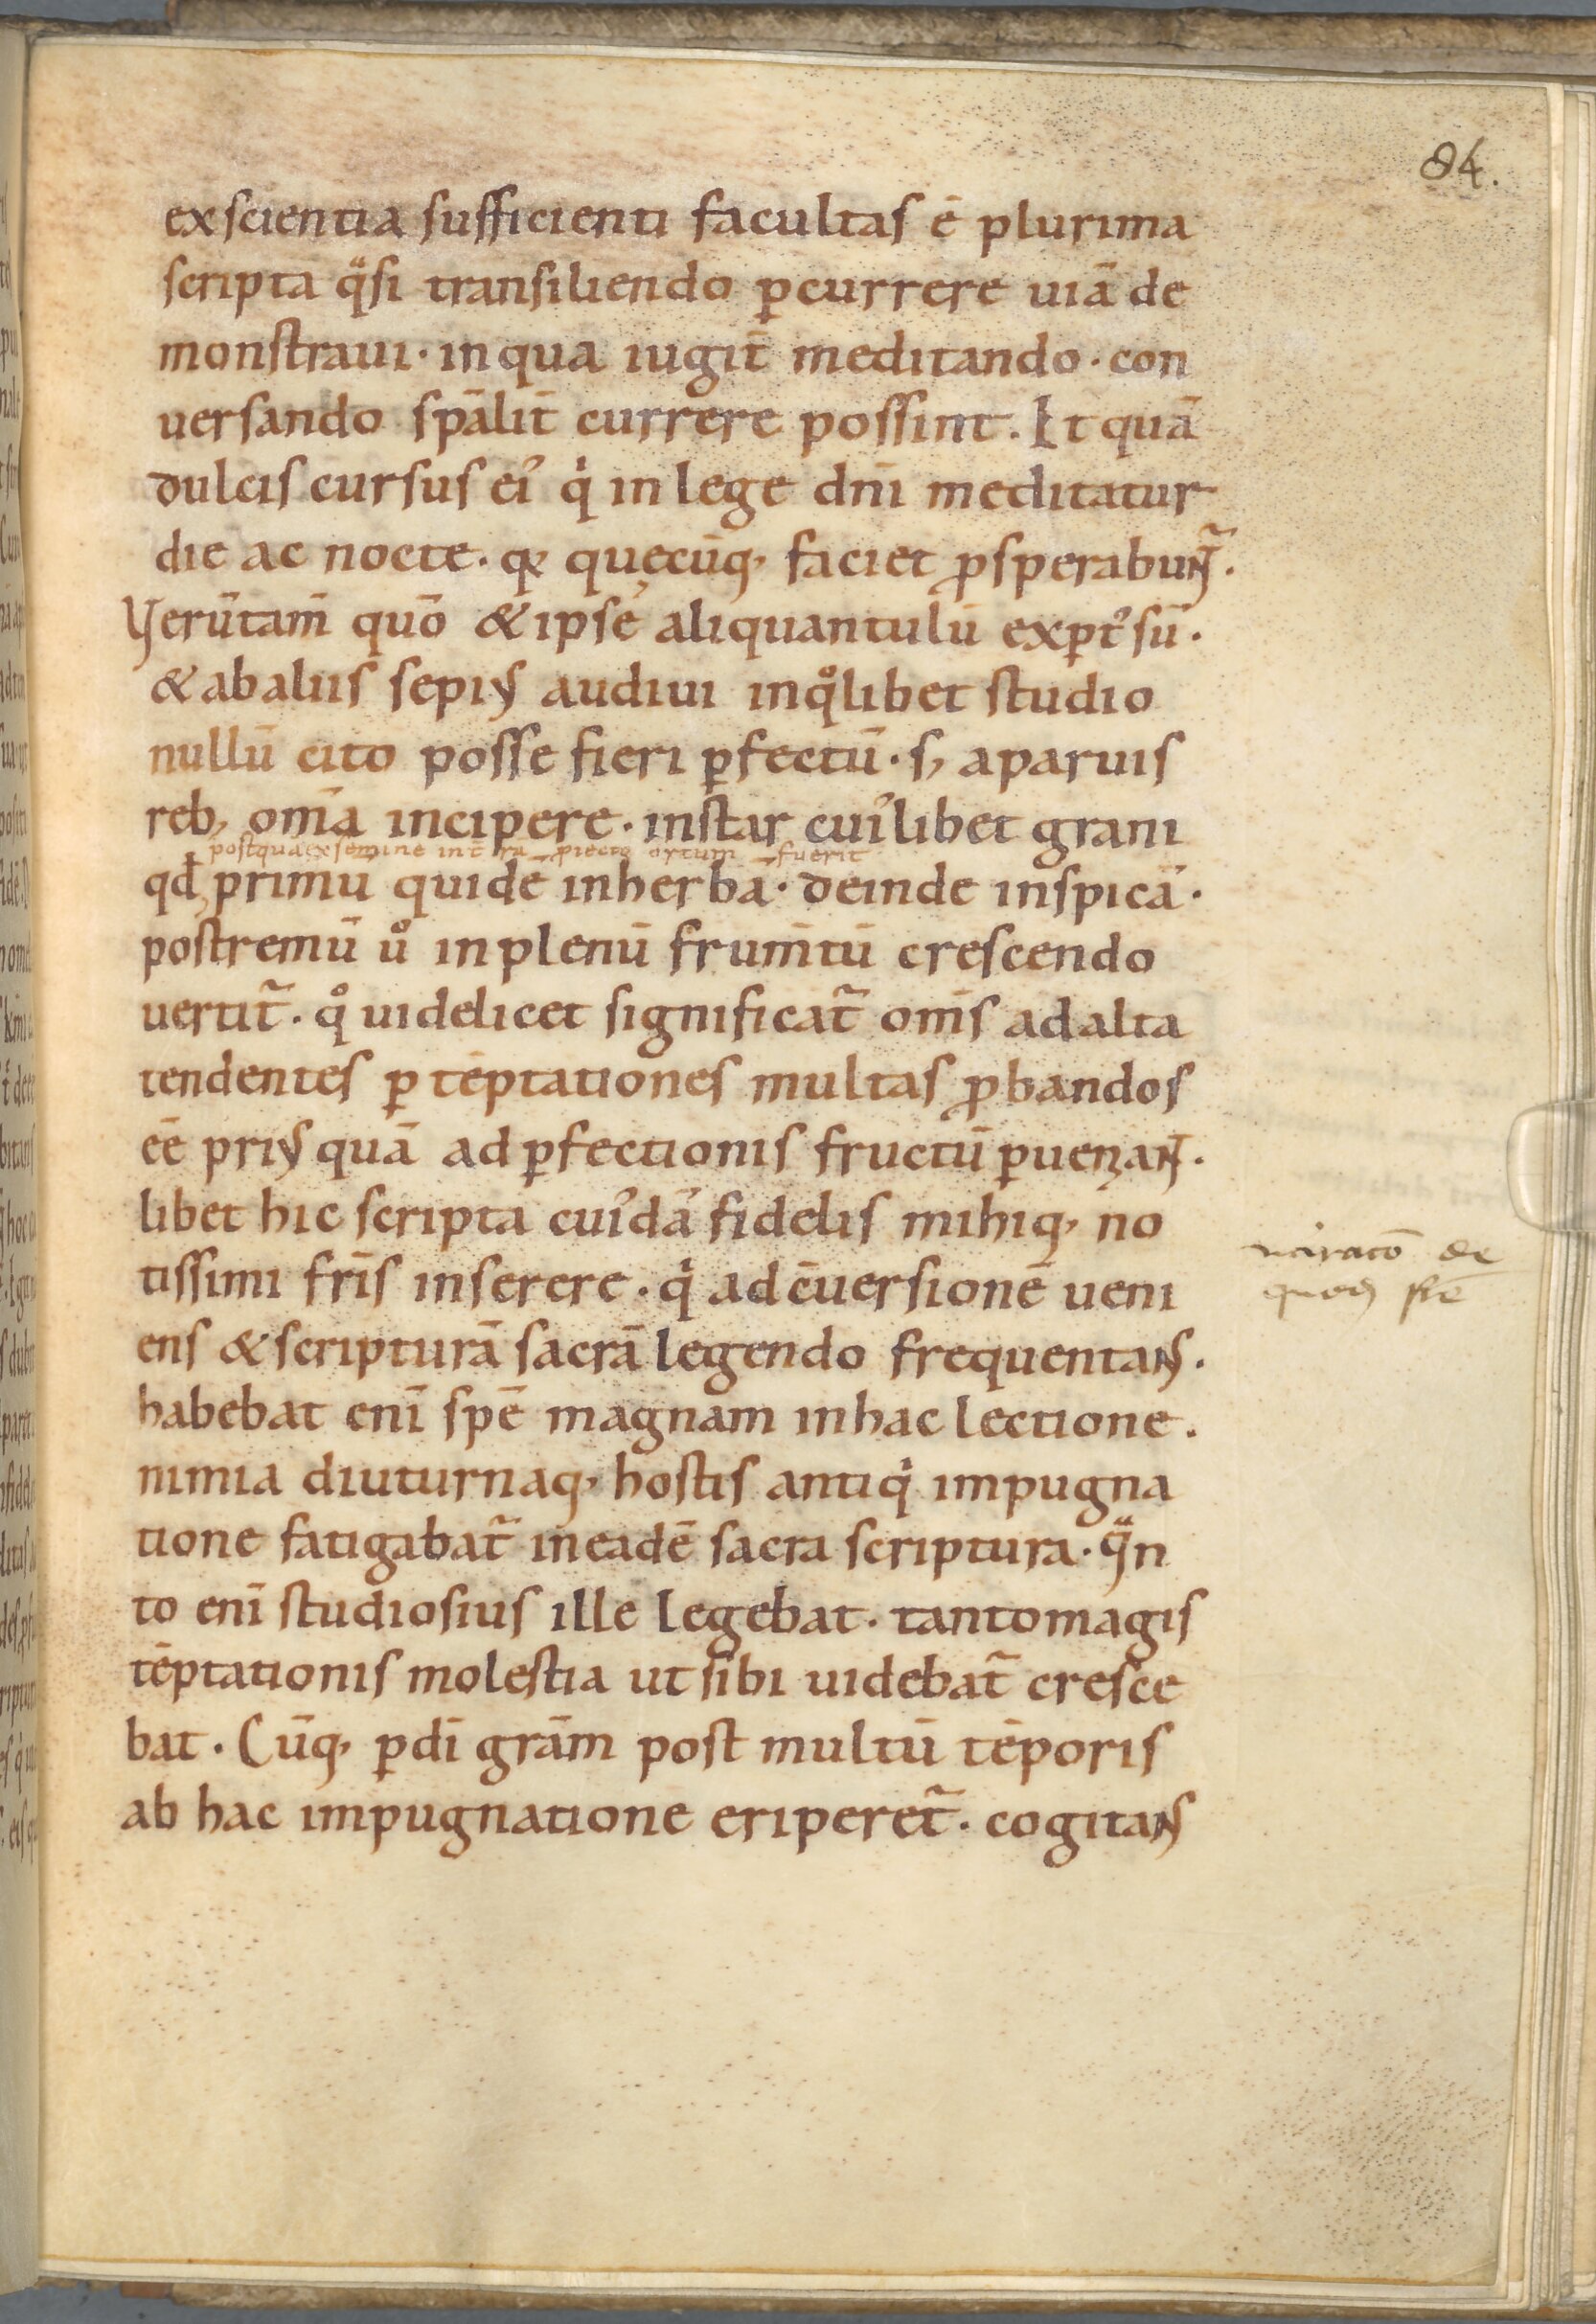 84.
ex scientia sufficienti facultas ē plurima
scripta qͣsi transiliendo ꝑcurrere uiā de
monstraui · in qua iugit̄ meditando · con
uersando sp̄alit̄ currere possint . Et quā
dulcis cursus ei᾿ qͥ in lege dn̄i meditatur
die ac nocte · qꝫ quęcūq; faciet ꝓsperabunt᷑ .
Verūtam̄ quō & ipse aliquantulū exꝑt᾿ sū .
& ab aliis sepius audiui in qͦlibet studio
nullū cito posse fieri ꝑfectū · s; a paruis
reb; om̄a incipere · instar cui᾿libet grani
postquā ex semine in t̄rā ꝓiecto ortum fuerit
qđ primū quidē in herbā · deinde in spicā ·
postremū uͦ in plenū frum̄tū crescendo
uertit᷑ · qͦ uidelicet significat᷑ om̄s ad alta
tendentes ꝑ tēptationes multas ꝓbandos
eē prius quā ad ꝑfectionis fructū ꝑueniant .
libet hic scripta cui᾿dā fidelis mihiq; no
tissimi fr̄is inserere · qͥ ad c̄uersionē ueni
ens & scripturā sacrā legendo frequentans .
habebat enī spē magnam in hac lectione .
nimia diuturnaq; hostis antiqͥ impugna
tione fatigabat᷑ in eadē sacra scriptura · qͣn
to enī studiosius ille legebat · tanto magis
tēptationis molestia ut sibi uidebat᷑ cresce
bat . Cūq; ꝑ dī grām post multū tēporis
ab hac impugnatione eriperet᷑ . cogitans
de